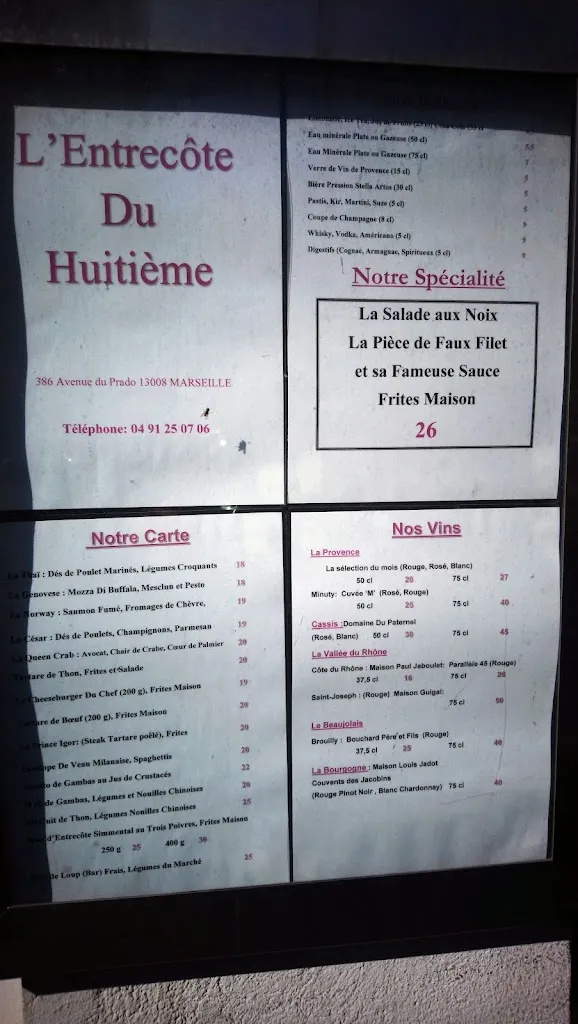 L'Entrecôte
Du
Huitième
386 Avenue du Prado 13008 MARSEILLE
Téléphone: 04 91 25 07 06
Eau minérale Plate ou Gazeuse (50 cl)
Eau Minérale Plate ou Gazeuse (75 cl)
Verre de Vin de Provence (15 cl) 5
Bière Pression Stella Artos (30 cl) 5
Pastis, Kir, Martini, Suze (5 cl) 5
Coupe de Champagne (8 cl) 9
Whisky, Vodka, Américano (5 cl) 9
Digestifs (Cognac, Armagnac, Spiritueux (5 cl) 9
Notre Spécialité
La Salade aux Noix
La Pièce de Faux Filet
et sa Fameuse Sauce
Frites Maison
26
Notre Carte
Thaï : Dés de Poulet Marinés, Légumes Croquants 18
Genovese : Mozza Di Buffala, Mesclun et Pesto 18
Norway : Saumon Fumé, Fromages de Chèvre, 19
César : Dés de Poulets, Champignons, Parmesan 19
Queen Crab : Avocat, Chair de Crabe, Cœur de Palmier 20
Tartare de Thon, Frites et Salade 20
Cheeseburger Du Chef (200 g), Frites Maison 19
de Bœuf (200 g), Frites Maison 20
Prince Igor: (Steak Tartare poêlé), Frites 20
De Veau Milanaise, Spaghettis 20
de Gambas au Jus de Crustacés 22
de Gambas, Légumes et Nouilles Chinoises 20
de Thon, Légumes Nouilles Chinoises 25
d'Entrecôte Simmental au Trois Poivres, Frites Maison
250 g 25 400 g 39
Loup (Bar) Frais, Légumes du Marché 25
Nos Vins
La Provence
La sélection du mois (Rouge, Rosé, Blanc)
50 cl 20 75 cl 27
Minuty: Cuvée 'M' (Rosé, Rouge)
50 cl 25 75 cl 40
Cassis :Domaine Du Paternel
(Rosé, Blanc) 50 cl 30 75 cl 45
La Vallée du Rhône
Côte du Rhône : Maison Paul Jaboulet: Parallèle 45 (Rouge)
37,5 cl 16 75 cl 26
Saint-Joseph : (Rouge) Maison Guigal:
75 cl 50
Le Beaujolais
Brouilly : Bouchard Père et Fils (Rouge)
37,5 cl 25 75 cl 40
La Bourgogne : Maison Louis Jadot
Couvents des Jacobins
(Rouge Pinot Noir , Blanc Chardonnay) 75 cl 40